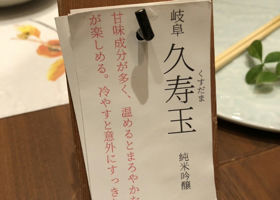 岐阜
久寿玉
くすだま
純米吟醸
甘味成分が多く、温めるとまろやかな
が楽しめる。冷やすと意外にすっきり